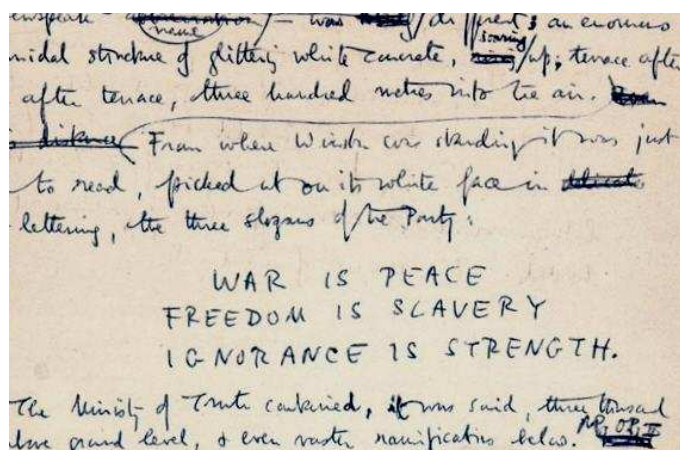 ewspeak name — was different; an enormous
midal structure of glittering white concrete, soaring up, terrace after
after terrace, three hundred metres into the air.
distance From where Winston was standing it was just
to read, picked out on its white face in
lettering, the three slogans of the Party:
WAR IS PEACE
FREEDOM IS SLAVERY
IGNORANCE IS STRENGTH.
The Ministry of Truth contained, it was said, three thousand
above ground level, & even vaster ramifications below.